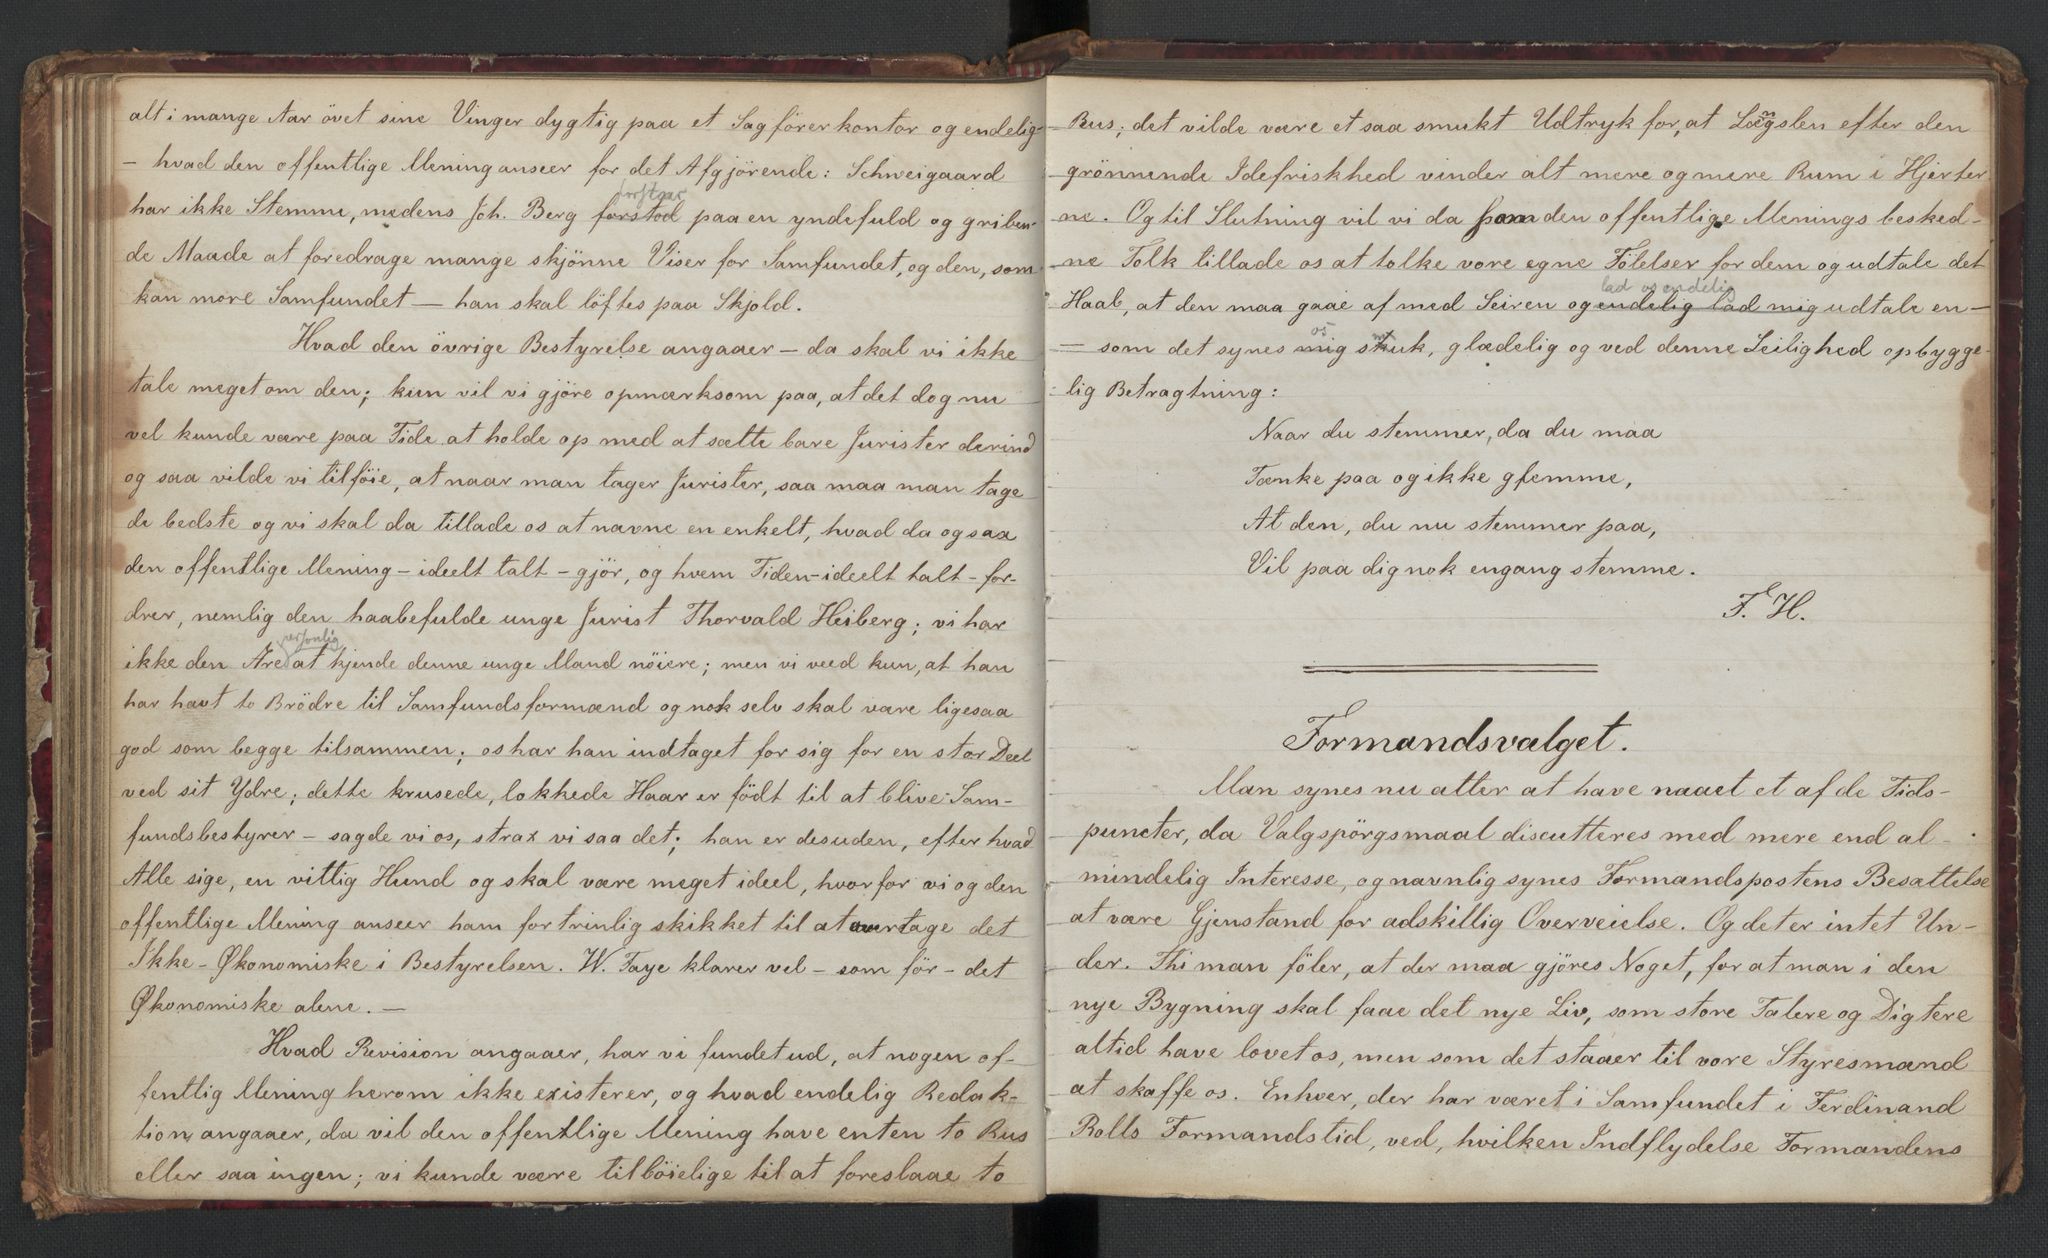 alt i mange Aar övet sine Vinger dygtig paa et Sagförerkontor og endelig-
- hvad den offentlige Mening anseer for det Afgjörende: Schweigaard
forstaar
har ikke Stemme, medens Joh. Berg forstod paa en yndefuld og griben-
de Maade at foredrage mange skjönne Viser for Samfundet, og den, som
kan more Samfundet — han skal löftes paa Skjold.
Hvad den övrige Bestyrelse angaaer — da skal vi ikke
tale meget om den; kun vil vi gjöre opmærksom paa, at det dog nu
vel kunde være paa Tide at holde op med at sætte bare Jurister derind
og saa vilde vi tilföie, at naar man tager Jurister, saa maa man tage
de bedste og vi skal da tillade os at navne en enkelt, hvad da ogsaa
den offentlige Mening - ideelt talt - gjör, og hvem Tiden - ideelt talt - for-
drer, nemlig den haabefulde unge Jurist Thorvald Heiberg; vi har
personlig
ikke den Ære at kjende denne unge Mand nöiere; men vi veed kun, at han
har havt to Brödre til Samfundsformænd og nok selv skal være ligesaa
god som begge tilsammen; os har han indtaget for sig for en stor Deel
ved sit Ydre; dette krusede, lokkede Haar er födt til at blive Sam-
fundsbestyrer - sagde vi os, strax vi saa det; han er desuden, efter hvad
Alle sige, en vittig Hund og skal være meget ideel, hvorfor vi og den
offentlige Mening anseer ham fortrinlig skikket til at overtage det
Ikke-Økonomiske i Bestyrelsen. W. Faye klarer vel - som för - det
Økonomiske alene. —
Hvad Revision angaaer, har vi fundet ud, at nogen of-
fentlig Mening herom ikke existerer, og hvad endelig Redak-
tion angaaer, da vil den offentlige Mening have enten to Rus
eller saa ingen; vi kunde være tilböielige til at foreslaae to
Rus; det vilde være et saa smukt Udtryk for, at Længslen efter den
grönnende Idefriskhed vinder alt mere og mere Rum i Hjerter
ne. Og til Slutning vil vi da som den offentlige Menings besked-
ne Tolk tillade os at tolke vore egne Fölelser for dem og udtale det
lad os endelig
Haab, at den maa gaae af med Seiren og endelig lad mig udtale en-
os
— som det synes mig smuk, glædelig og ved denne Leilighed opbygge-
lig Betragtning:
Naar du stemmer, da du maa
Tænke paa og ikke glemme,
At den, du nu stemmer paa,
Vil paa dig nok engang stemme.
F. H.
Formandsvalget.
Man synes nu atter at have naaet et af de Tids-
puncter, da Valgspörgsmaal discutteres med mere end al-
mindelig Interesse, og navnlig synes Formandspostens Besættelse
at være Gjenstand for adskillig Overveielse. Og det er intet Un-
der. Thi man föler, at der maa gjöres Noget, for at man i den
nye Bygning skal faae det nye Liv, som store Talere og Digtere
altid have lovet os, men som det staaer til vore Styresmænd
at skaffe os. Enhver, der har været i Samfundet i Ferdinand
Rolls Formandstid, ved, hvilken Indflydelse Formandens